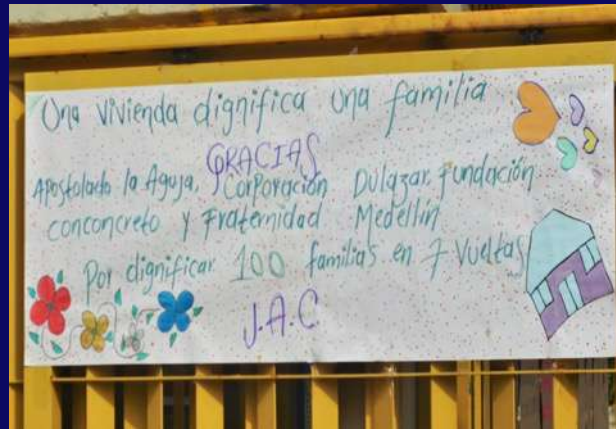 Una vivienda dignifica una familia
GRACIAS
Apostolado la Aguja, Corporación Dulazar, Fundación
conconcreto y Fraternidad Medellín
Por dignificar 100 familias en 7 Vueltas
J.A.C